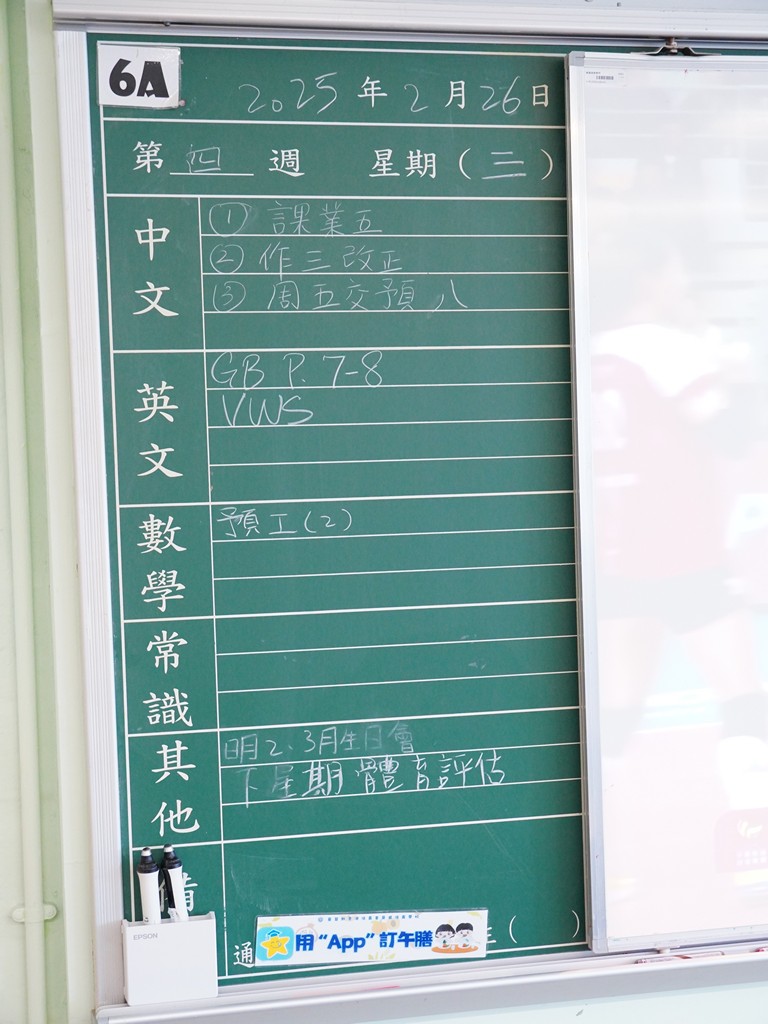 6A
2025年2月26日
第四週 星期(三)
中文
① 課業五
② 作三改正
③ 周五交預八
英文
GB P. 7-8
VWS
數學
預工(2)
常識
其他
明2、3月生日會
下星期體育評估
通
( )
EPSON
用"App"訂午膳